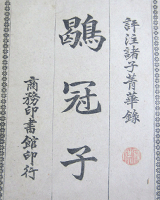 評注諸子菁華錄
鶡冠子
商務印書館印行